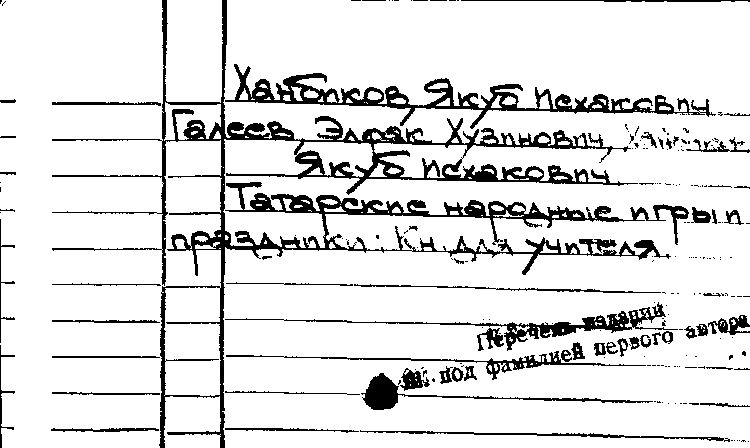 Ханбиков, Якуб Исхакович
Галеев, Элфак Хузинович, Ханбиков
Якуб Исхакович.
Татарские народные игры и
праздники: Кн. для учителя.
Перечень изданий
см. под фамилией первого автора